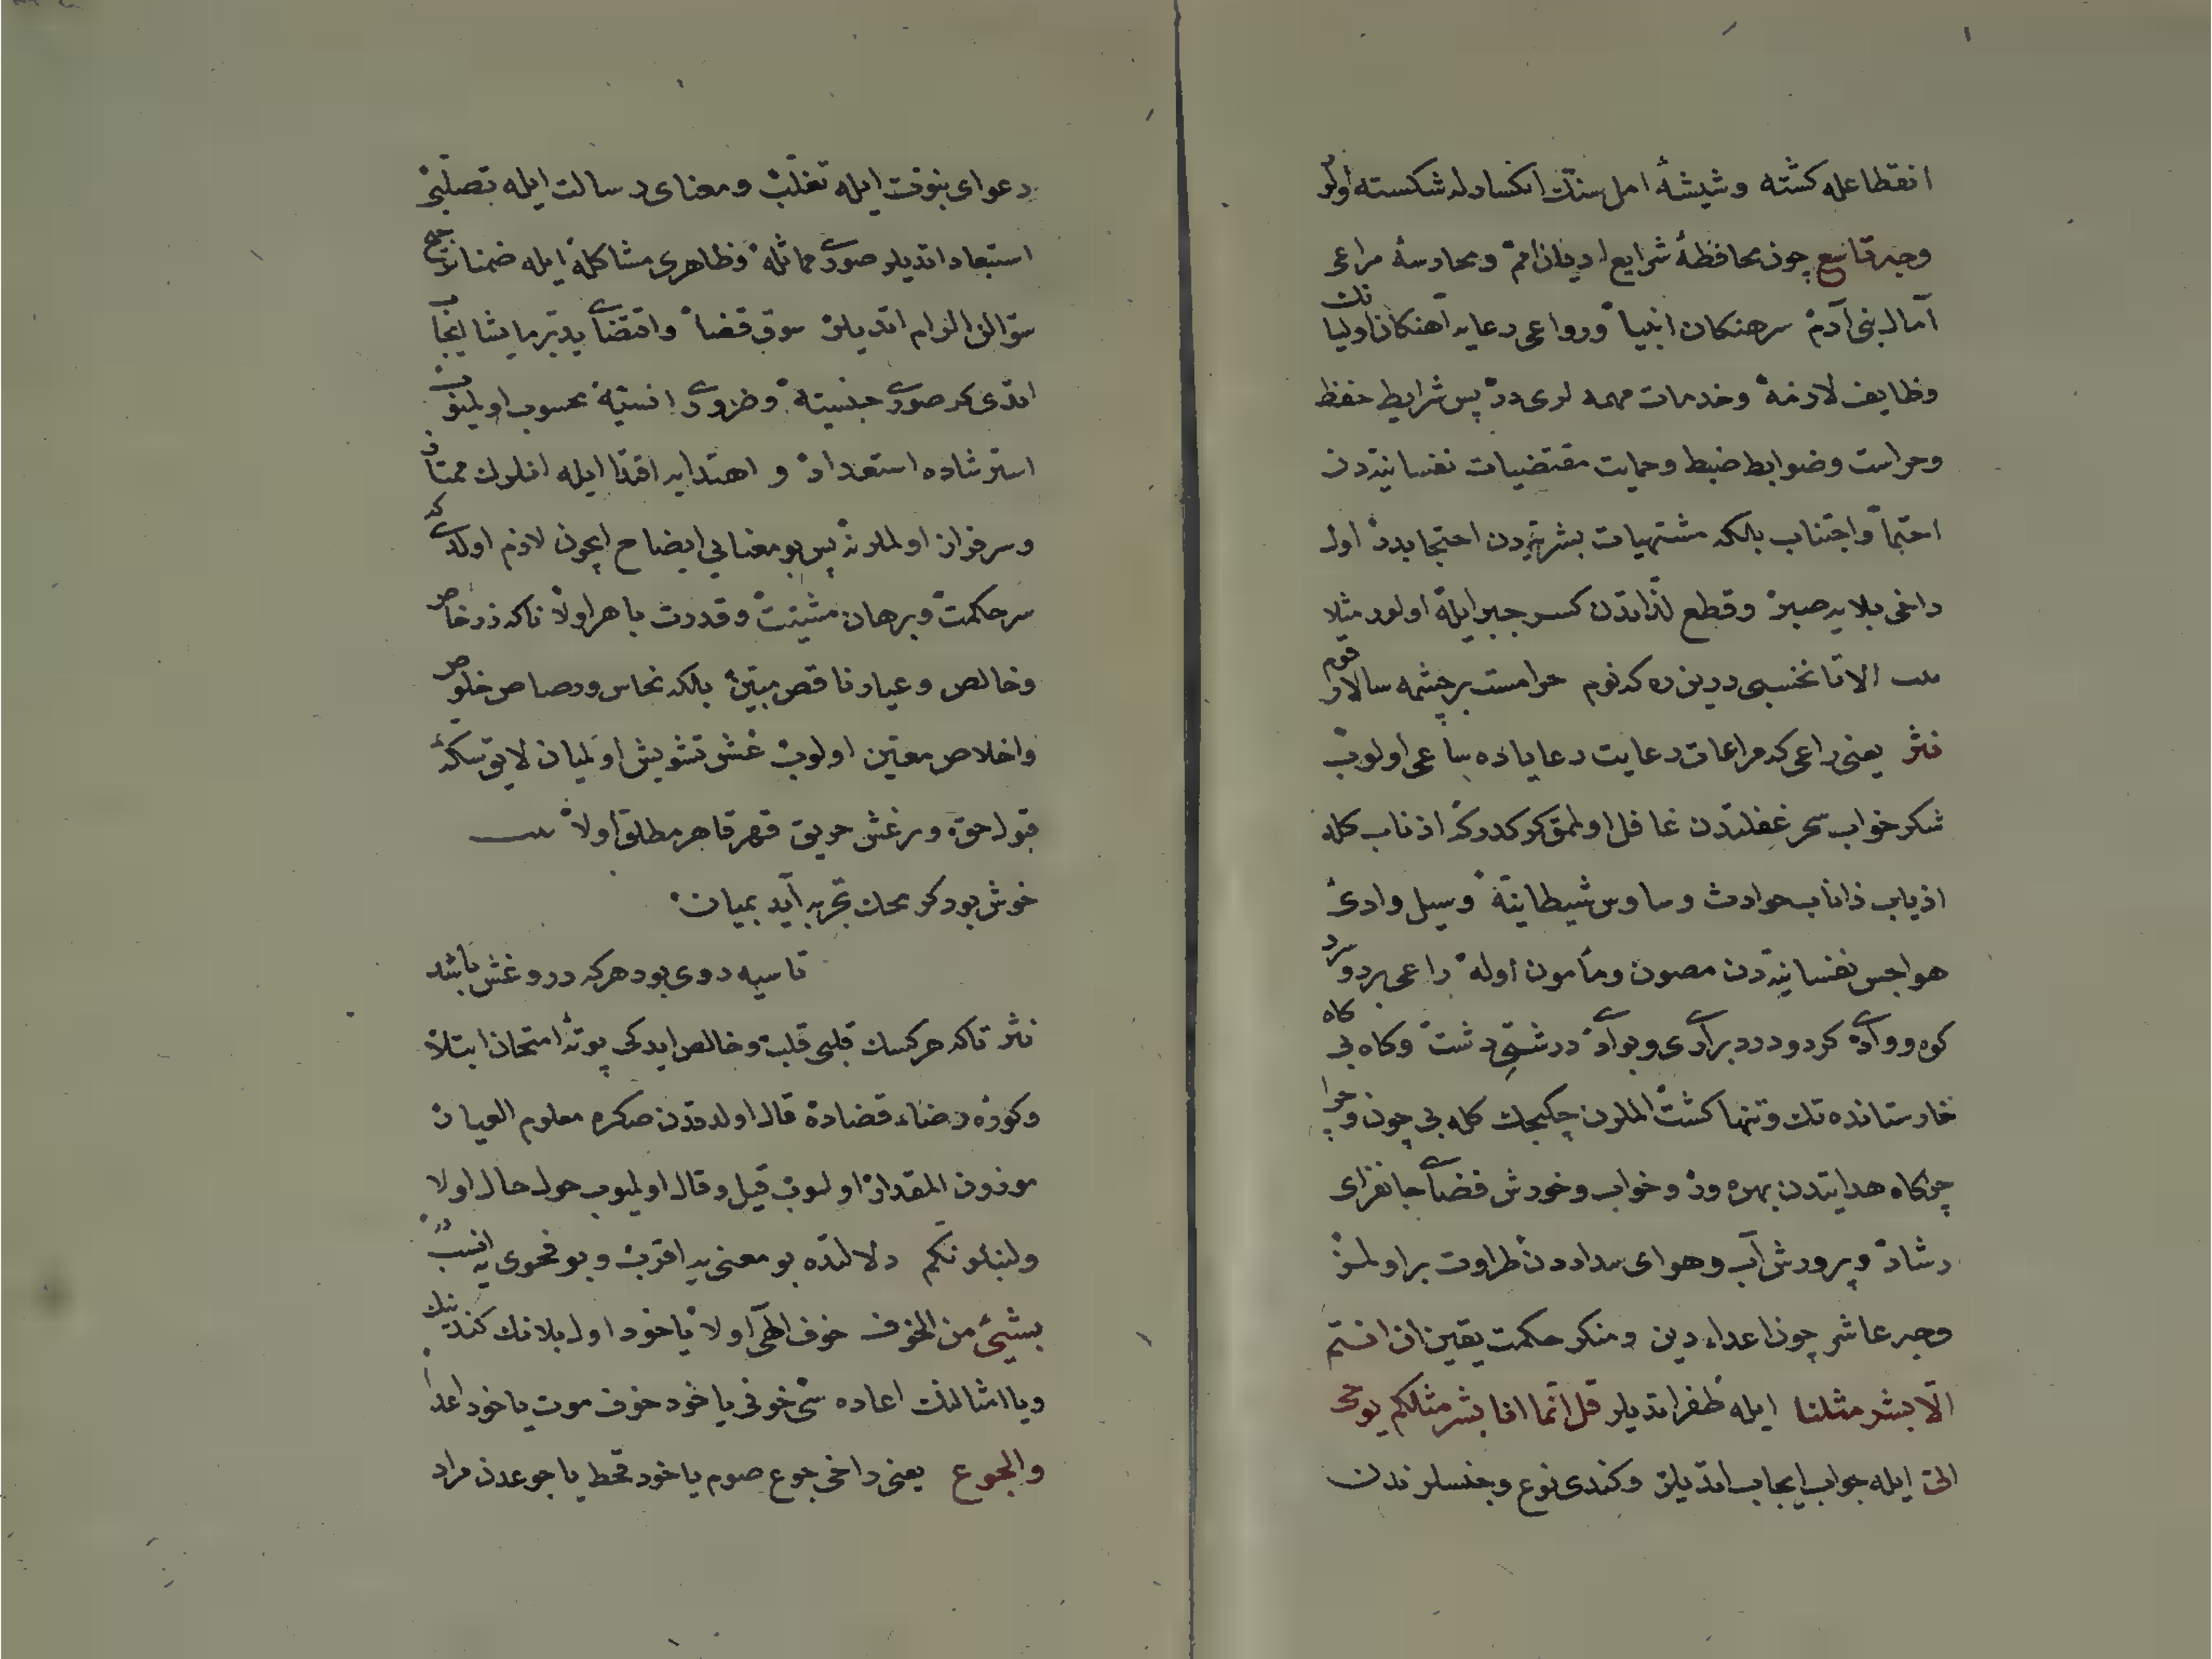 انقطاعله كشته وشيشهٔ امل سنك انكسارله شكسته اولور
وجه تاسع چون محافظهٔ شرايع اديان امم ومحارسهٔ مراعى
آمال بنى آدم سرهنكان انبيا ورواعى رعايه آهنكان اوليانك
وظايف لازمه وخدمات مهمه لرى در پس شرايط حفظ
وحراست وضوابط ضبط وحمايت مقتضيات نفسانيتدن
احتما واجتناب بلكه مشتهيات بشريتدن احتجابدر اول
داخى بلايه صبر وقطع لذاتدن كسر جبر ايله اولور مثلا
الا تا نخسبى درين ره كه نوم حرامست بر چشمه سالار قوم
نثر يعنى راعى كه مراعات رعايت رعاياده ساعى اولوب
شكر خواب سحر غفلتدن غافل اولمق كركدركه اذناب كله
اذياب ذاناب حوادث وساوس شيطانيه وسيل وادئ
هواجس نفسانيتدن مصون ومأمون اوله راعى برد وسرد
كوه ووادى كرد ودرد برادى وبوادى درشتى دشت وكاه بى كاه
خارستانده تك وتنها كشت المدن چكيجك كله بى چون وچرا
چراكاه هدايتدن بهره ور وخواب وخورش فضاى جانفزاى
رشاد وپرورش آب وهواى سداددن طراوت بر اولمز
وجه عاشر چون اعداء دين ومنكر حكمت يقين ان انتم
الّا بشر مثلنا ايله ظفر اتديلر قل انّما انا بشر مثلكم يوحى
الىّ ايله جواب ايجاب اتديلر وكندى نوع وجنسلرندن
دعواى نبوت ايله تغلب ومعناى رسالت ايله تصلبى
استبعاد اتديلر صورى مماثله وظاهرى مشاكله ايله ضمنا ترجيح
سؤالن الزام اتديلر سوق قضا واقتضاى يدبر ما يشا ايجاب
اتدى كه صورى جنسيته وضرورى انسيته محسوب اولميوب
استرشاده استعداد و اهتدايه اقتدا ايله انلردن ممتاز
وسرفراز اولملر پس بو معنايى ايضاح ايچون لازم اولدى كه
سر حكمت وبرهان مشيت وقدرت باهر اولا تاكه زر خاص
وخالص وعيار ناقص مبين بلكه نحاس ورصاص خلوص
واخلاص معين اولوب غش تشويش اوليان لايق سكهٔ
قبول حق ه ورغش حريق قهر قاهر مطلق اولا
خوش بود كر محك تجربه آيد بميان
تا سيه روى بود هركه درو غش باشد
نثر تاكه هر كسك قلبى قلب وخالص ايدكى پوتهٔ امتحان ابتلا
وكورهٔ رضاء قضاده قال اولدقدن صكره معلوم العيار
موزون المقدار اولوب قيل وقال اوليوب حول حال اولا
ولنبلونكم دلالتده بو معنى يه اقرب وبو فحوى يه انسبدر
بشيئ من الخوف خوف الهى اولا ياخود اول بلانك كندينك
ويا امثالنك اعاده سى خوفى ياخود خوف موت ياخود اعدا
والجوع يعنى داخى جوع صوم ياخود قحط يا جوعدن مراد